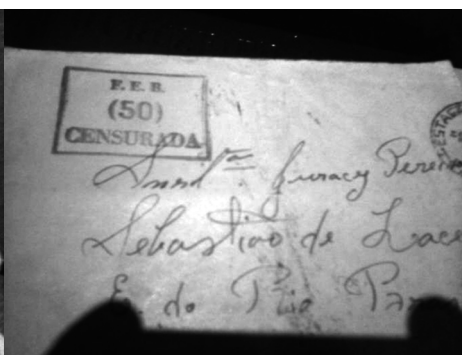 F. E. B.
(50)
CENSURADA
Snrd ta Juracy Perei
Sebastião de Lace
E. do Rio